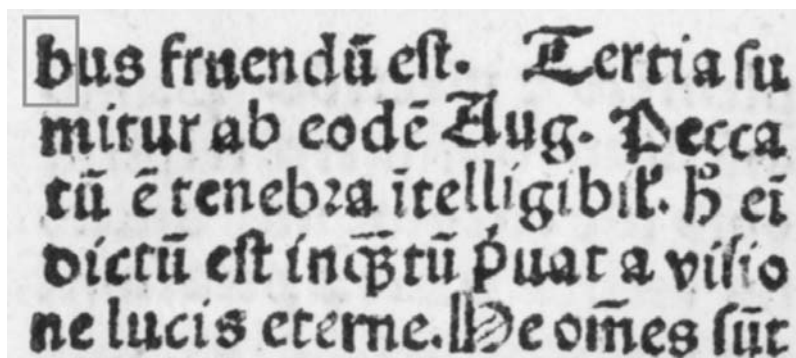 bus fruendū eſt. Tertia ſu
mitur ab eodē Aug. Pecca
tū ē tenebꝛa ītelligibil'. h̄ ei
dictū eſt inqꝫtū puat a viſio
ne lucis eterne. He om̄es ſūt